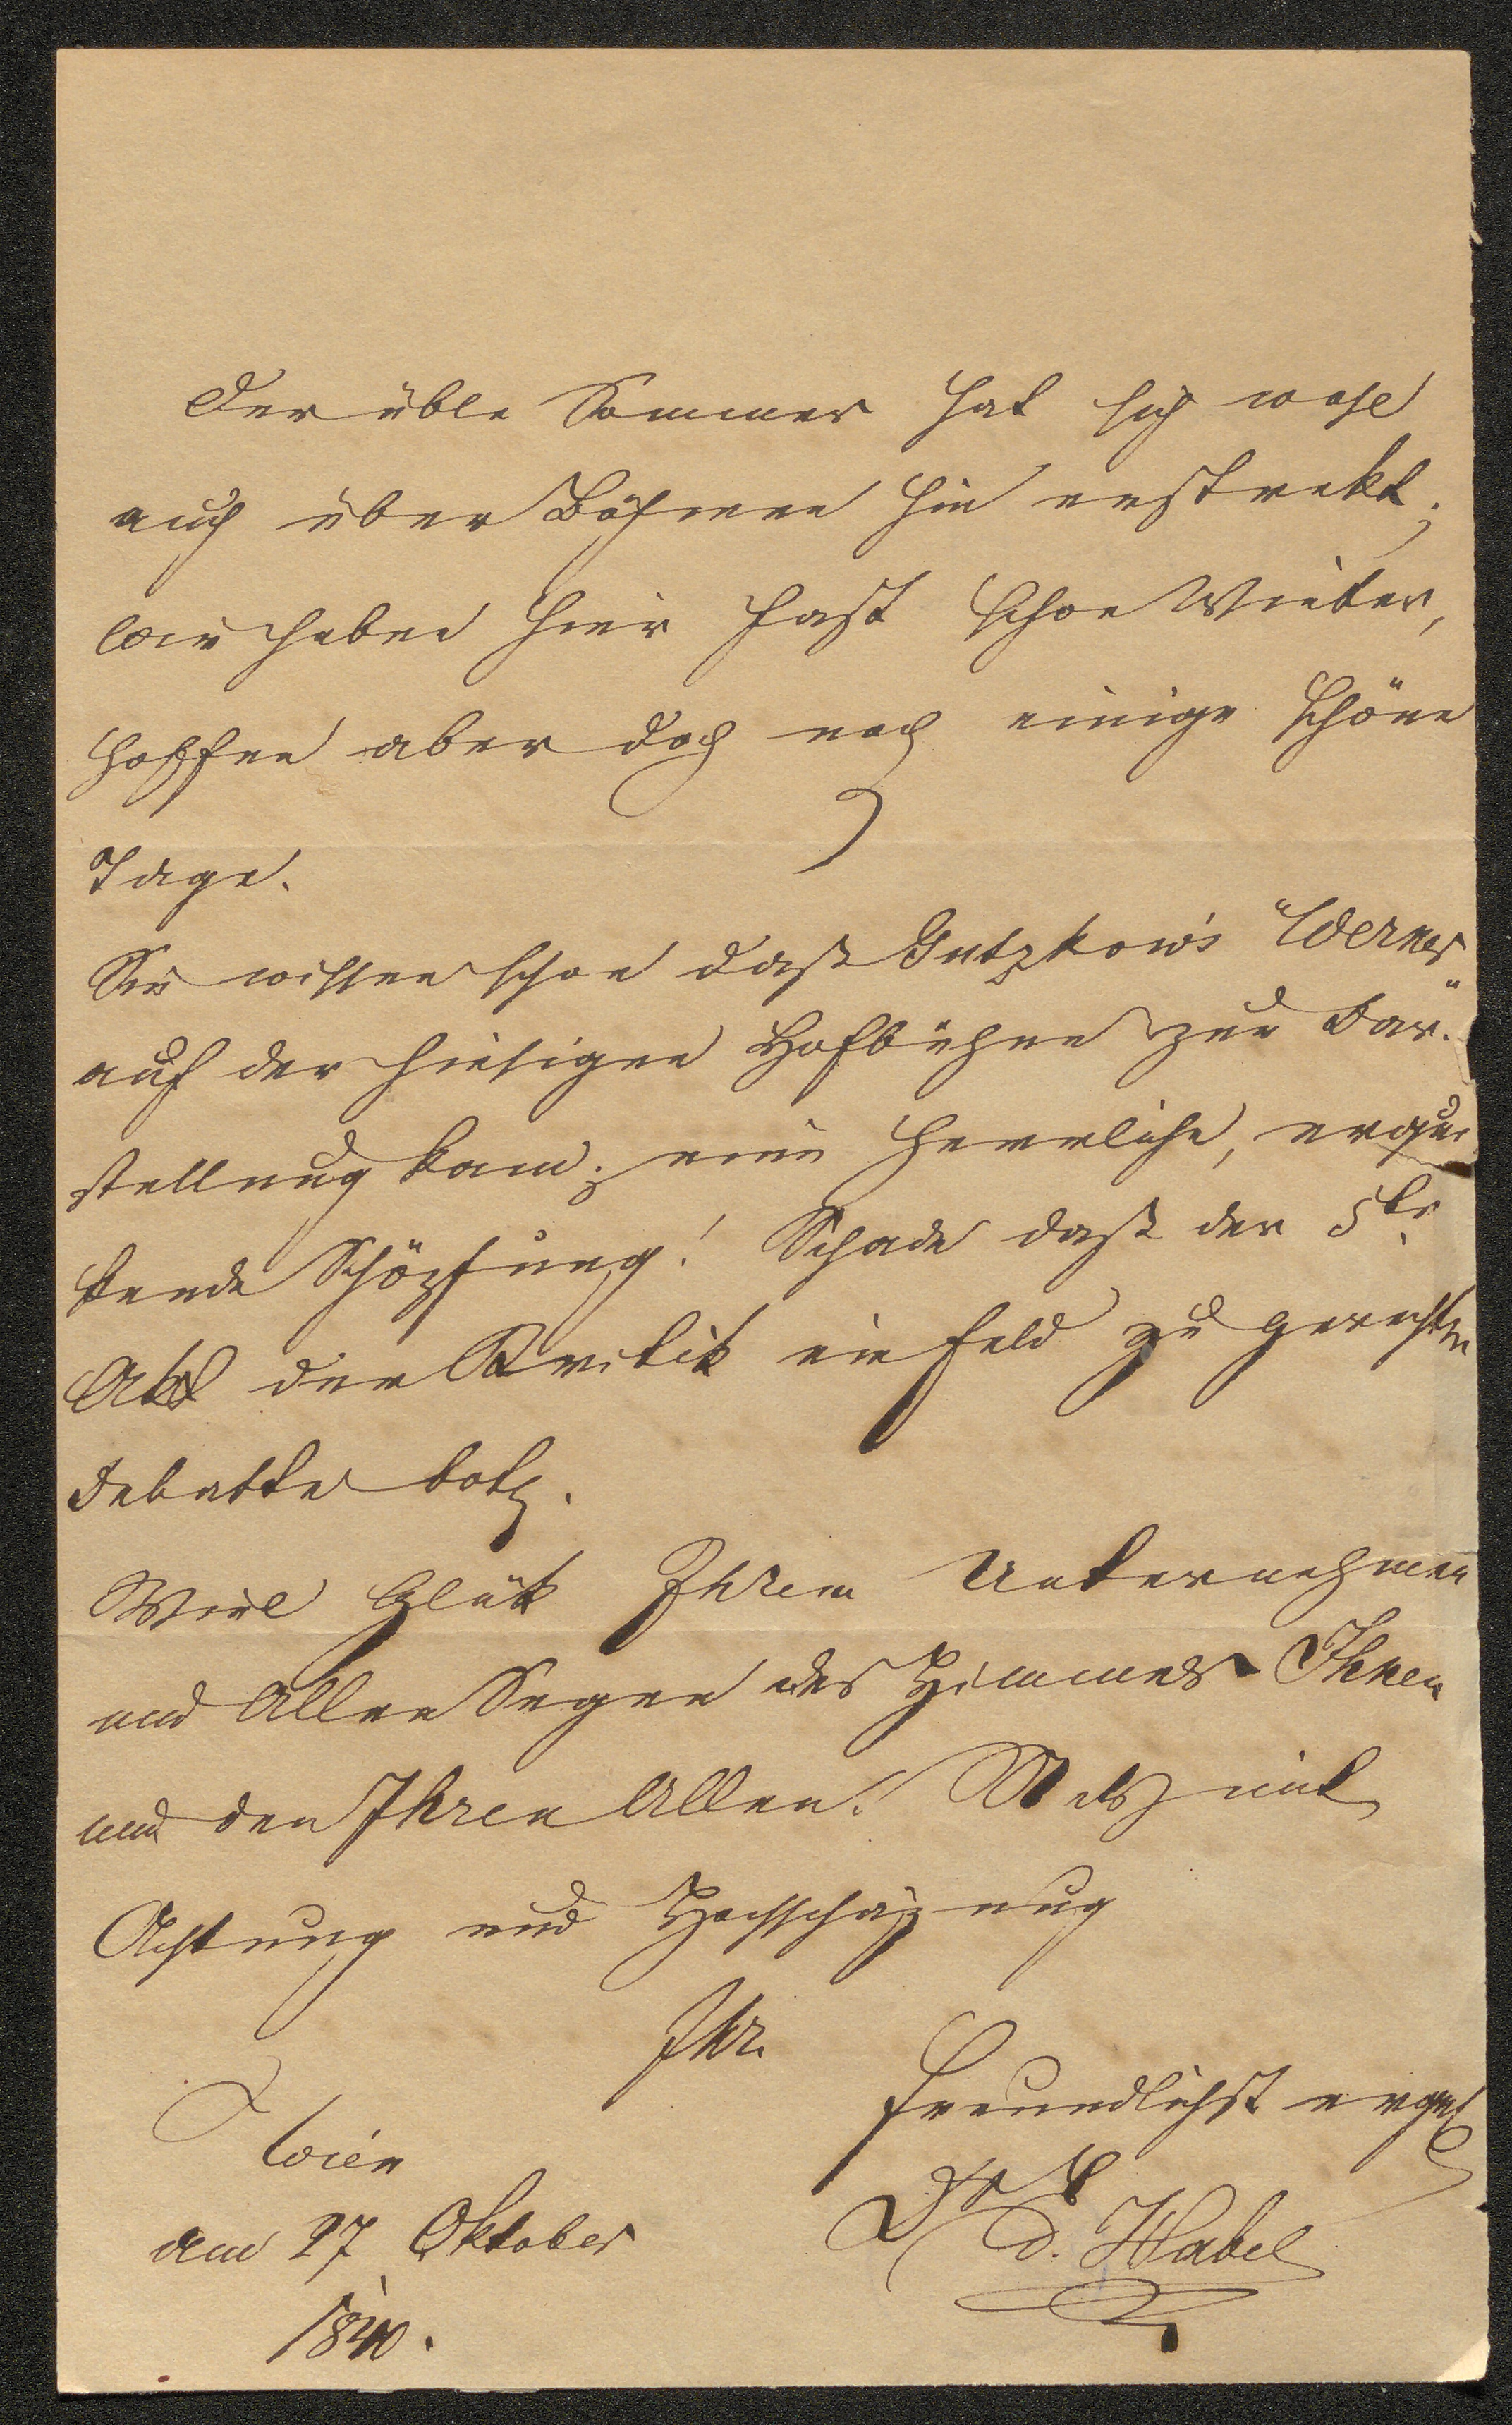 Der üble Sommer hat sich wohl
auch über Böhmen hin erstrekt;
wir haben hier fast schon Winter,
hoffen aber doch noch einige schöne
Tage.
Sie wissen schon daß Gutzkow's "Werner"
auf der hiesigen Hofbühne zur Dar-
stellung kam; eine herrliche, erqui
kende Schöpfung! Schade daß der 5te
Akt der Kritik ein Feld zu gerechten
Debatten both.
Viel Glük Ihrem Unternehmen
und Allen Segen des Himmels Ihnen
und den Ihren Allen! Stets mit
Achtung und Hochschäzung
Ihr
freundlichst ergeb
Wien
am 27 Oktober
1840.